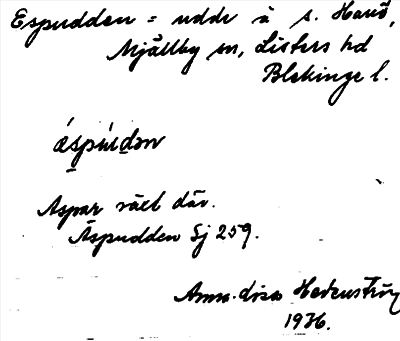 Espudden = udde å s. Hanö,
Mjällby sn, Listers hd
Blekinge l.
áspùdən
Aspar växt där.
Äspudden Sj 259.
Anna-Lisa Hedenström
1936.